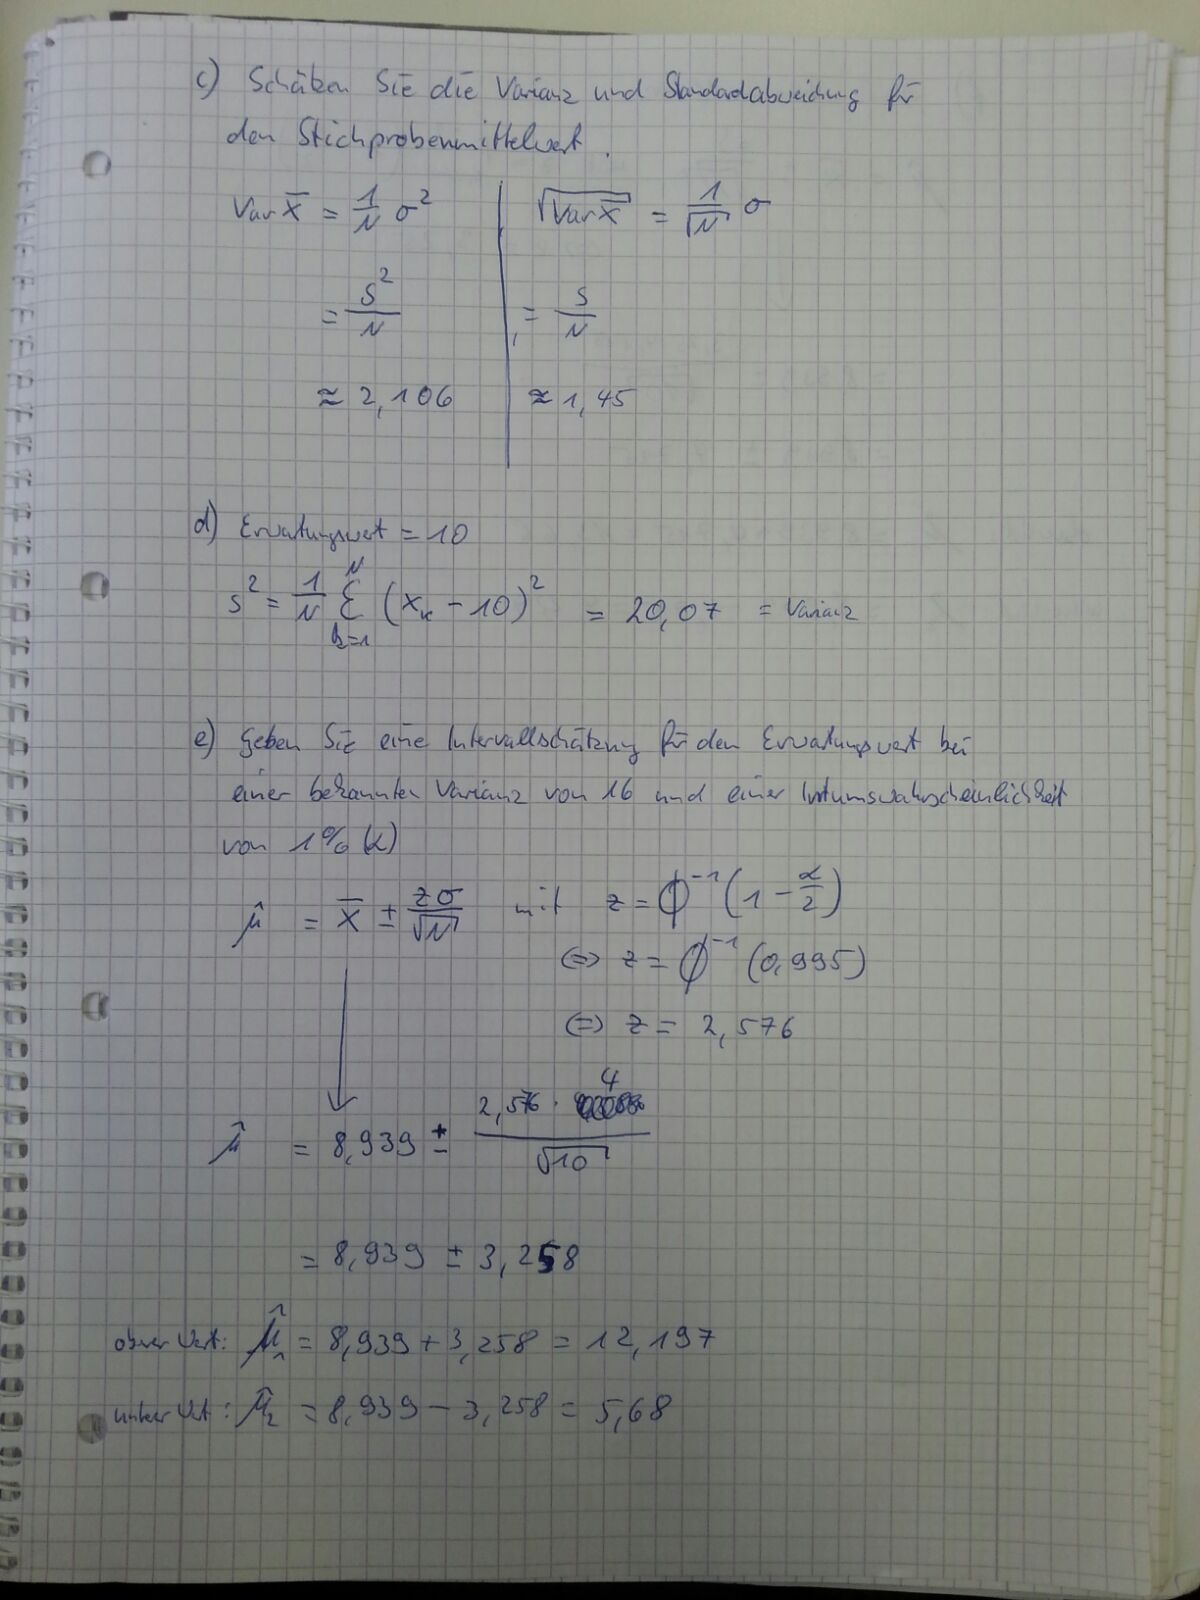 c) Schätzen Sie die Varianz und Standardabweichung für
den Stichprobenmittelwert.
Var X̅ = 1/N σ² | √(Var X̅) = 1/√N σ
= s²/N | = s/N
≈ 2,106 | ≈ 1,45
d) Erwartungswert = 10
s² = 1/N Σ_{k=1}^{N} (x_k − 10)² = 20,07 = Varianz
e) Geben Sie eine Intervallschätzung für den Erwartungswert bei
einer bekannten Varianz von 16 und einer Irrtumswahrscheinlichkeit
von 1% (α)
μ̂ = x̅ ± zσ/√N mit z = Φ⁻¹(1 − α/2)
⇔ z = Φ⁻¹(0,995)
⇔ z = 2,576
μ̂ = 8,939 ± 2,576 · 4/√10
= 8,939 ± 3,258
oberer Wert: μ̂₁ = 8,939 + 3,258 = 12,197
unterer Wert: μ̂₂ = 8,939 − 3,258 = 5,68